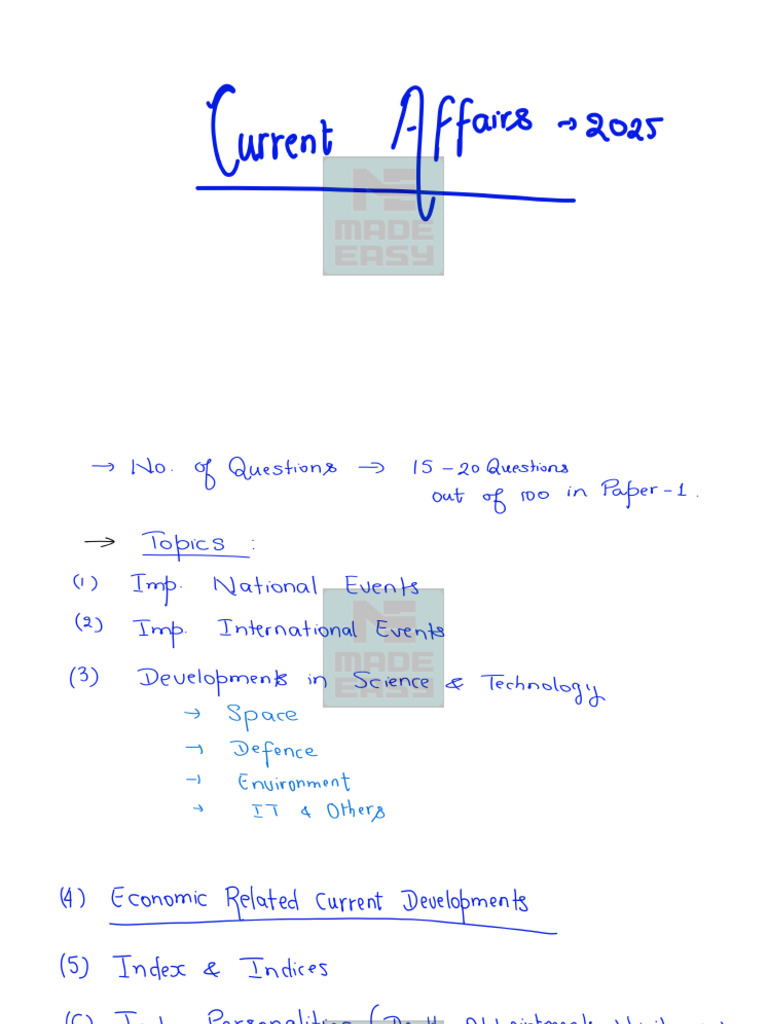 Current Affairs → 2025
MADE
EASY
→ No. of Questions → 15 - 20 Questions
out of 100 in Paper - 1.
→ Topics :
(1) Imp. National Events
(2) Imp. International Events
(3) Developments in Science & Technology
MADE
EASY
→ Space
→ Defence
→ Environment
→ IT & Others
(4) Economic Related Current Developments
(5) Index & Indices